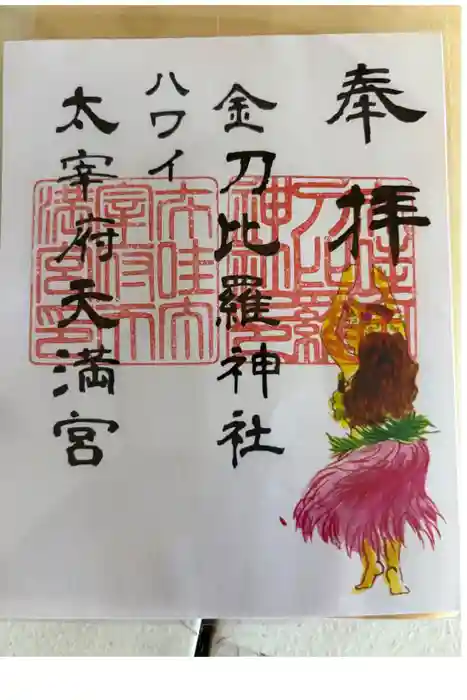 奉拝
金刀比羅神社
ハワイ
太宰府天満宮